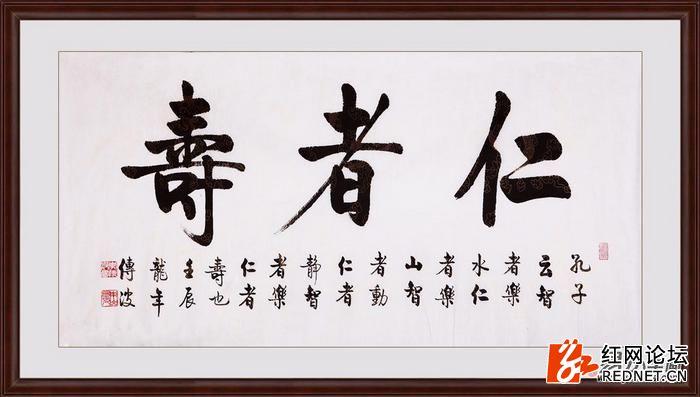 仁者壽
孔子
云智
者樂
水仁
者樂
山智
者動
仁者
靜智
者樂
仁者
壽也
壬辰
龍年
傳波
红网论坛
REDNET.CN